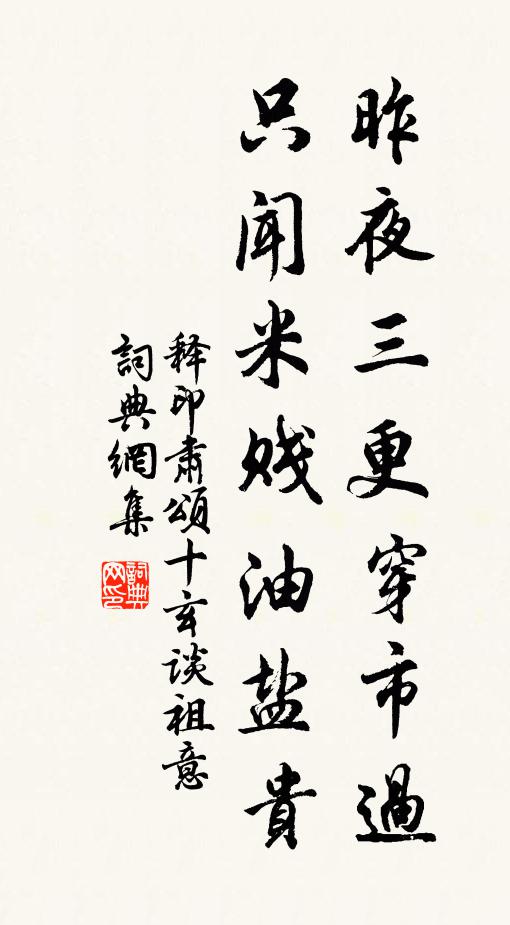 昨夜三更穿市過
只聞米贱油盐貴
释印肅頌十玄談祖意
詞典網集
詞典网印